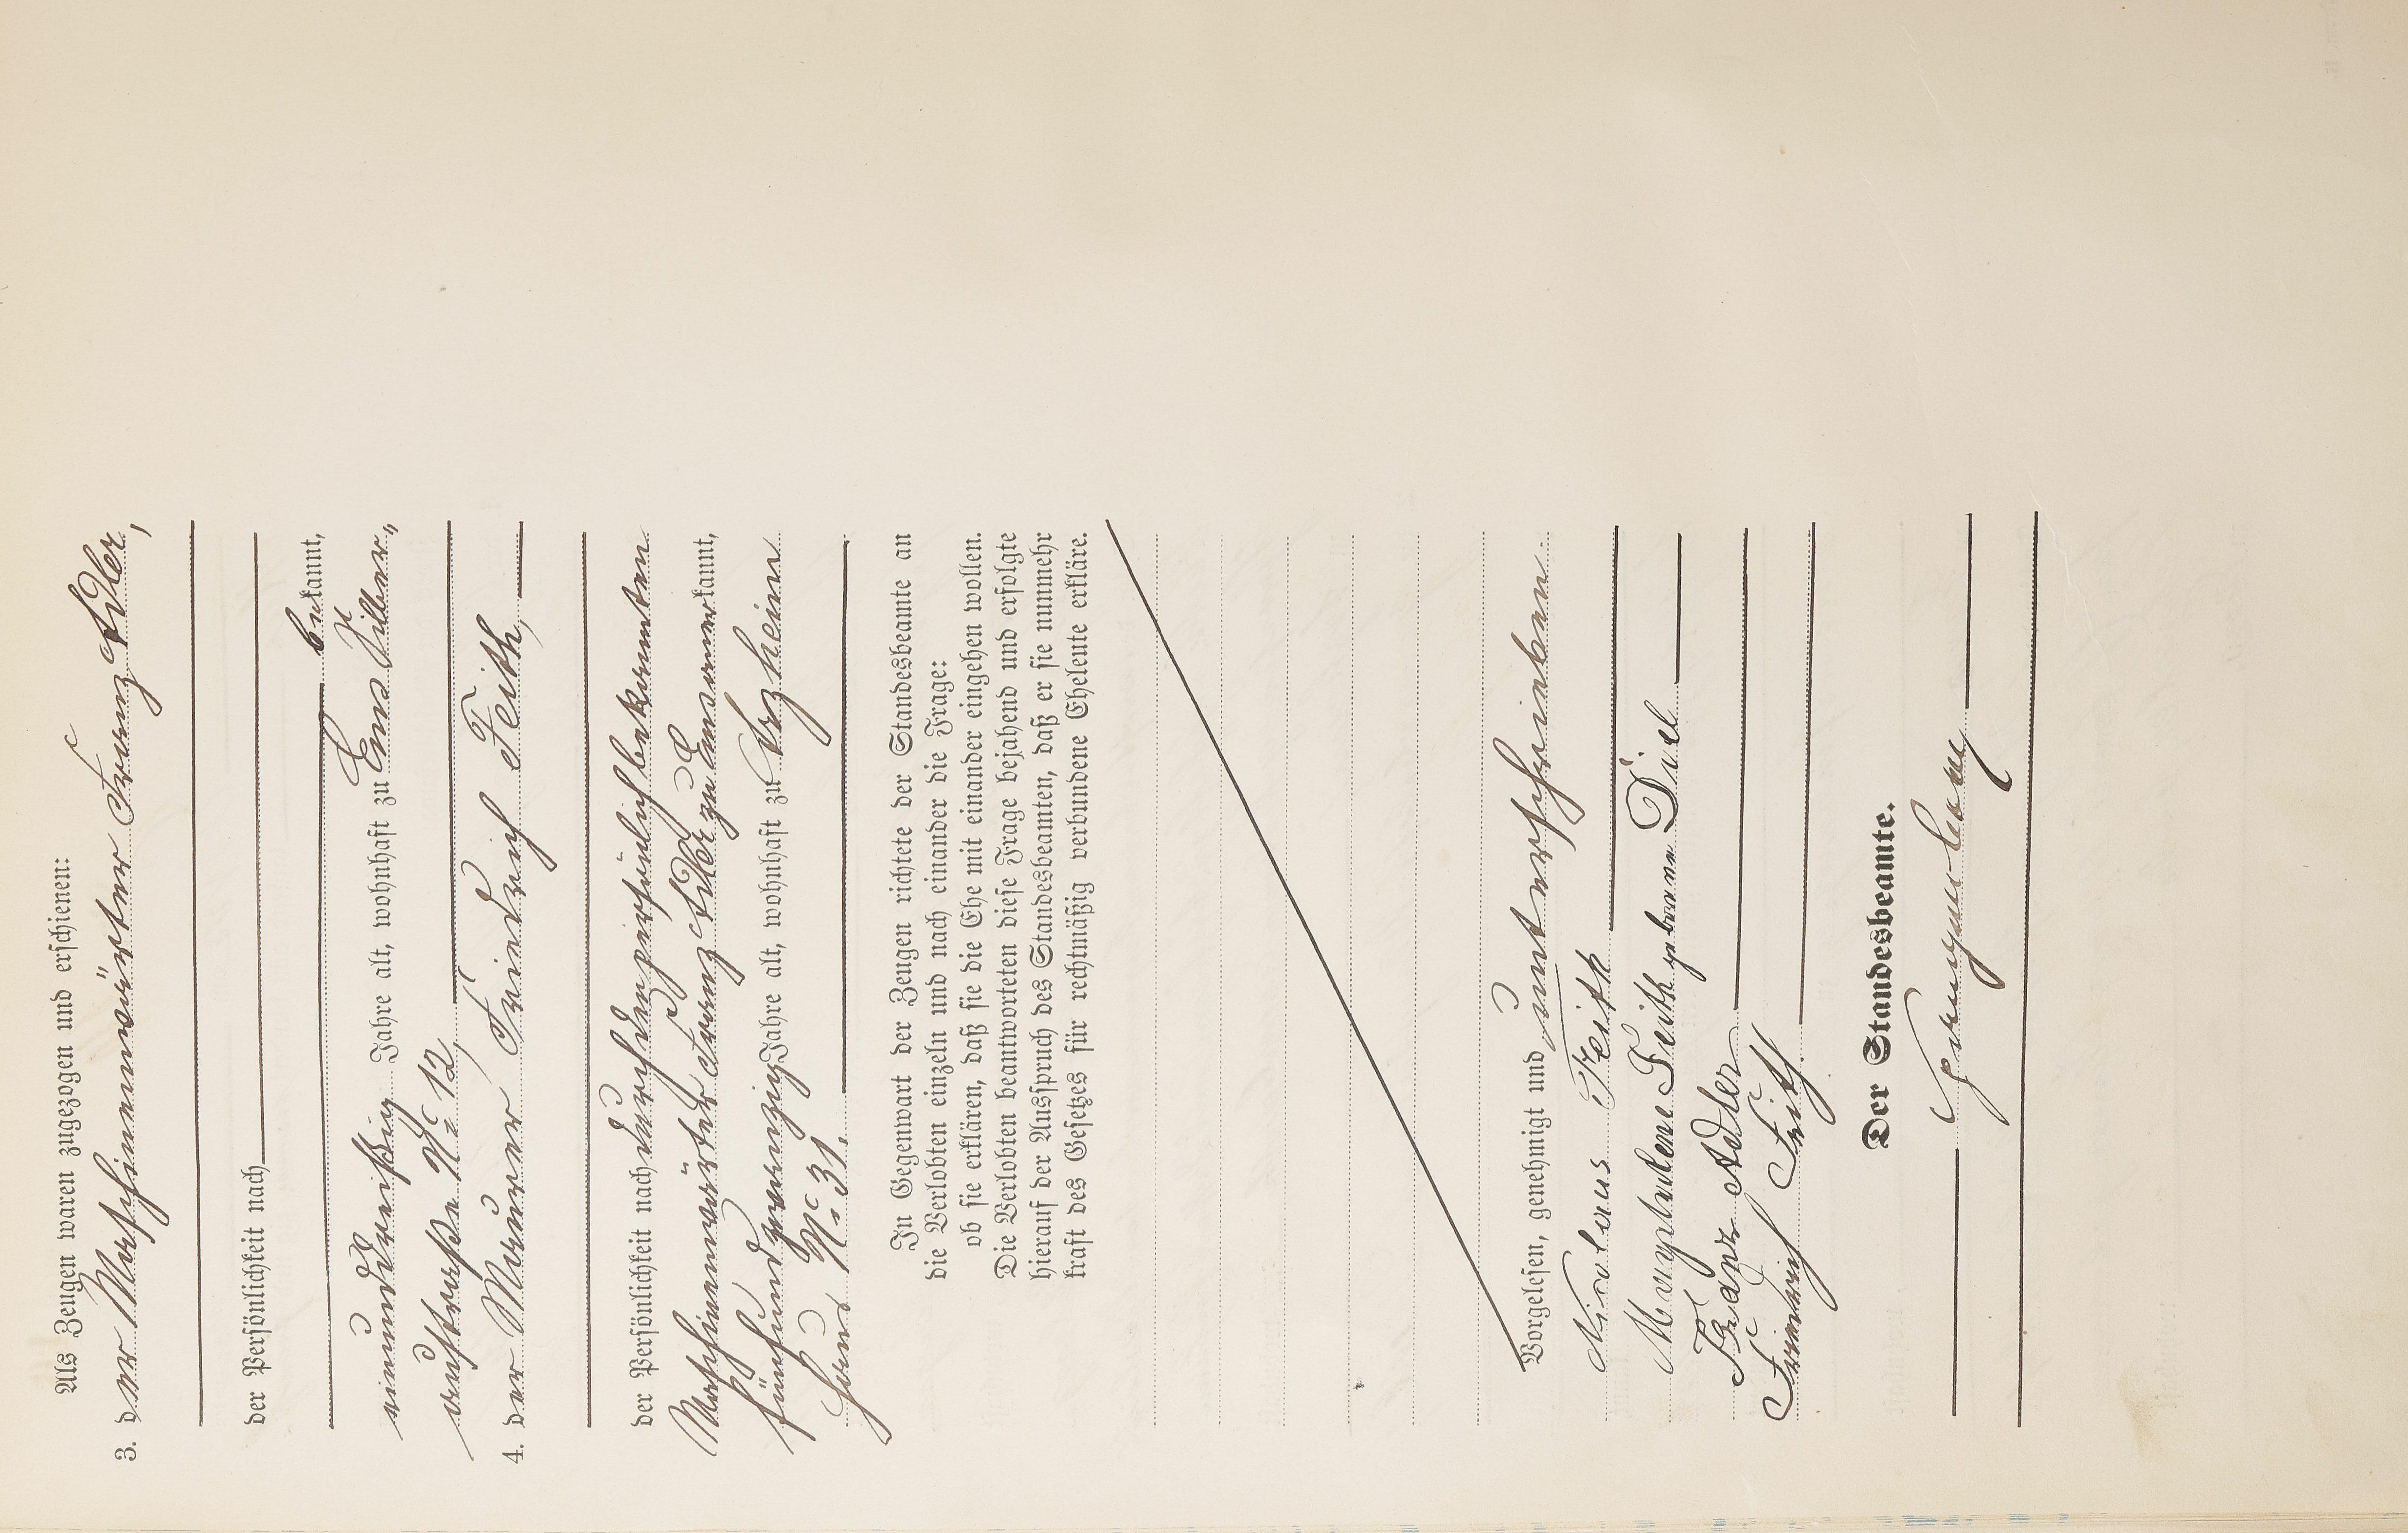 Als Zeugen waren zugezogen und erschienen:
3. der Maschinenwärter Franz Adler,
der Persönlichkeit nach
bekannt,
einunddreißig Jahre alt, wohnhaft zu Ems Silber-
austraße No 12,
4. der Maurer Friedrich Feith,
der Persönlichkeit nach durch den persönlich bekannten
Maschinenwärter Franz Adler zu Ems anerkannt,
fünfundzwanzig Jahre alt, wohnhaft zu Arzheim
Haus No 31.
In Gegenwart der Zeugen richtete der Standesbeamte an
die Verlobten einzeln und nach einander die Frage:
ob sie erklären, daß sie die Ehe mit einander eingehen wollen.
Die Verlobten beantworteten diese Frage bejahend und erfolgte
hierauf der Ausspruch des Standesbeamten, daß er sie nunmehr
kraft des Gesetzes für rechtmäßig verbundene Eheleute erkläre.
Vorgelesen, genehmigt und unterschrieben
Nicolaus Feith
Magdalena Feith geborene Diel
Franz Adler
Friedrich Feith
Der Standesbeamte.